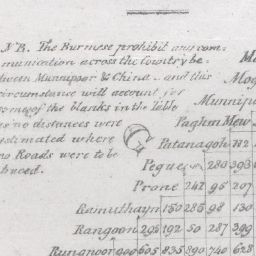 N.B. The Burmese prohibit any com-
munication across the Country be-
tween Munnipoor & China.. and this
circumstance will account for
some of the blanks in the Table
as no distances were
estimated where
no Roads were to be
traced.
Mo
Mog
Munnipo
Paghm Mew
Patanagoh 112
Pegue 280 393
Prone 242 95 207
Ramuthayn 150 285 98 130
Rangoon 295 192 50 287 399
Rungpoor 900 605 835 890 740 628